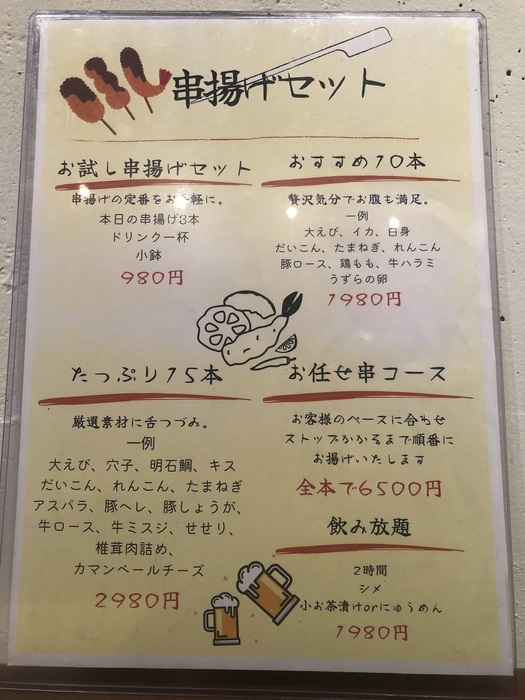 串揚げセット
お試し串揚げセット
串揚げの定番をお手軽に。
本日の串揚げ3本
ドリンク一杯
小鉢
980円
おすすめ10本
贅沢気分でお腹も満足。
一例
大えび、イカ、白身
だいこん、たまねぎ、れんこん
豚ロース、鶏もも、牛ハラミ
うずらの卵
1980円
たっぷり15本
厳選素材に舌つづみ。
一例
大えび、穴子、明石鯛、キス
だいこん、れんこん、たまねぎ
アスパラ、豚ヘレ、豚しょうが、
牛ロース、牛ミスジ、せせり、
椎茸肉詰め、
カマンベールチーズ
2980円
お任せ串コース
お客様のペースに合わせ
ストップかかるまで順番に
お揚げいたします
全本で6500円
飲み放題
2時間
シメ
小お茶漬けorにゅうめん
1980円